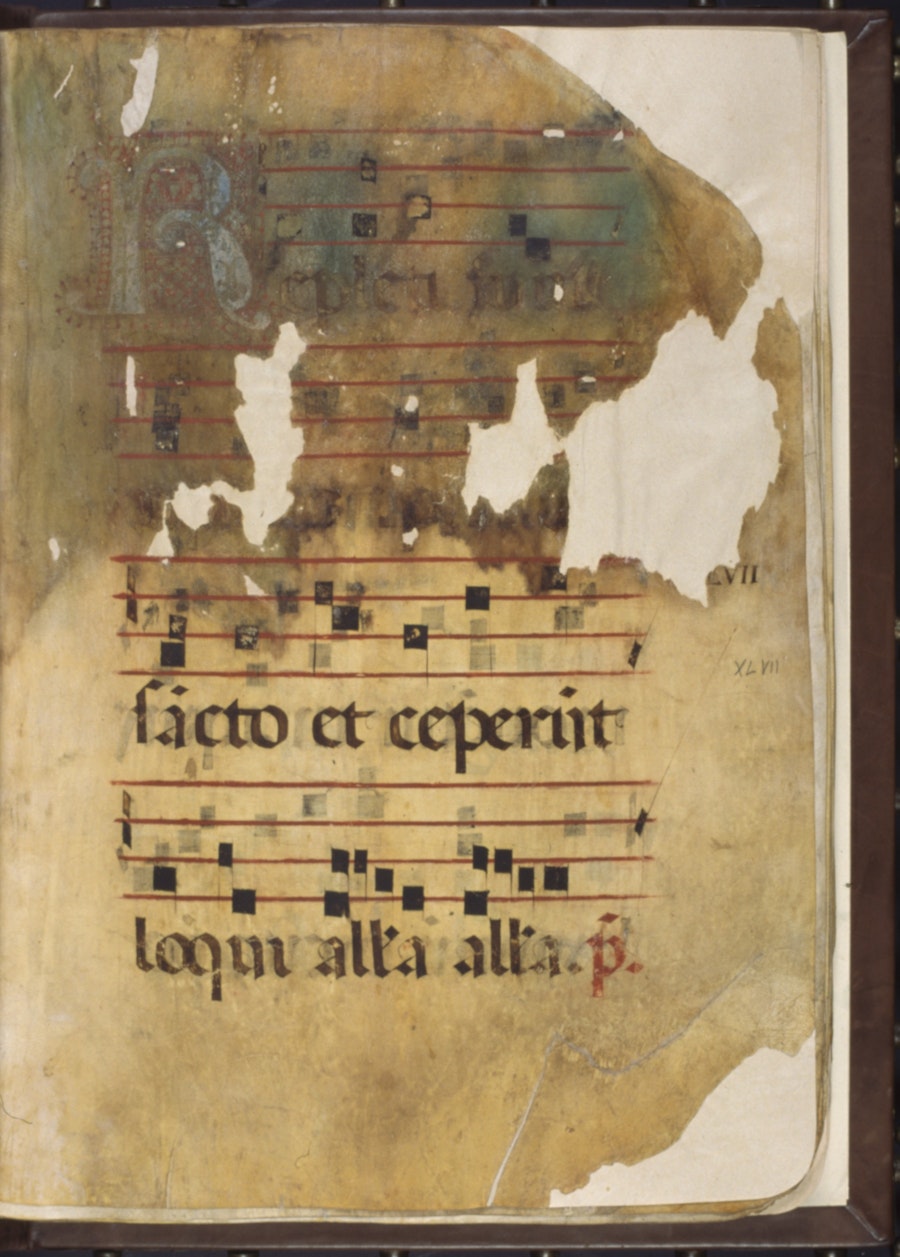 Repleti sunt
LVII
XLVII
sācto et ceperūt
loqui all'a all'a. p̄.